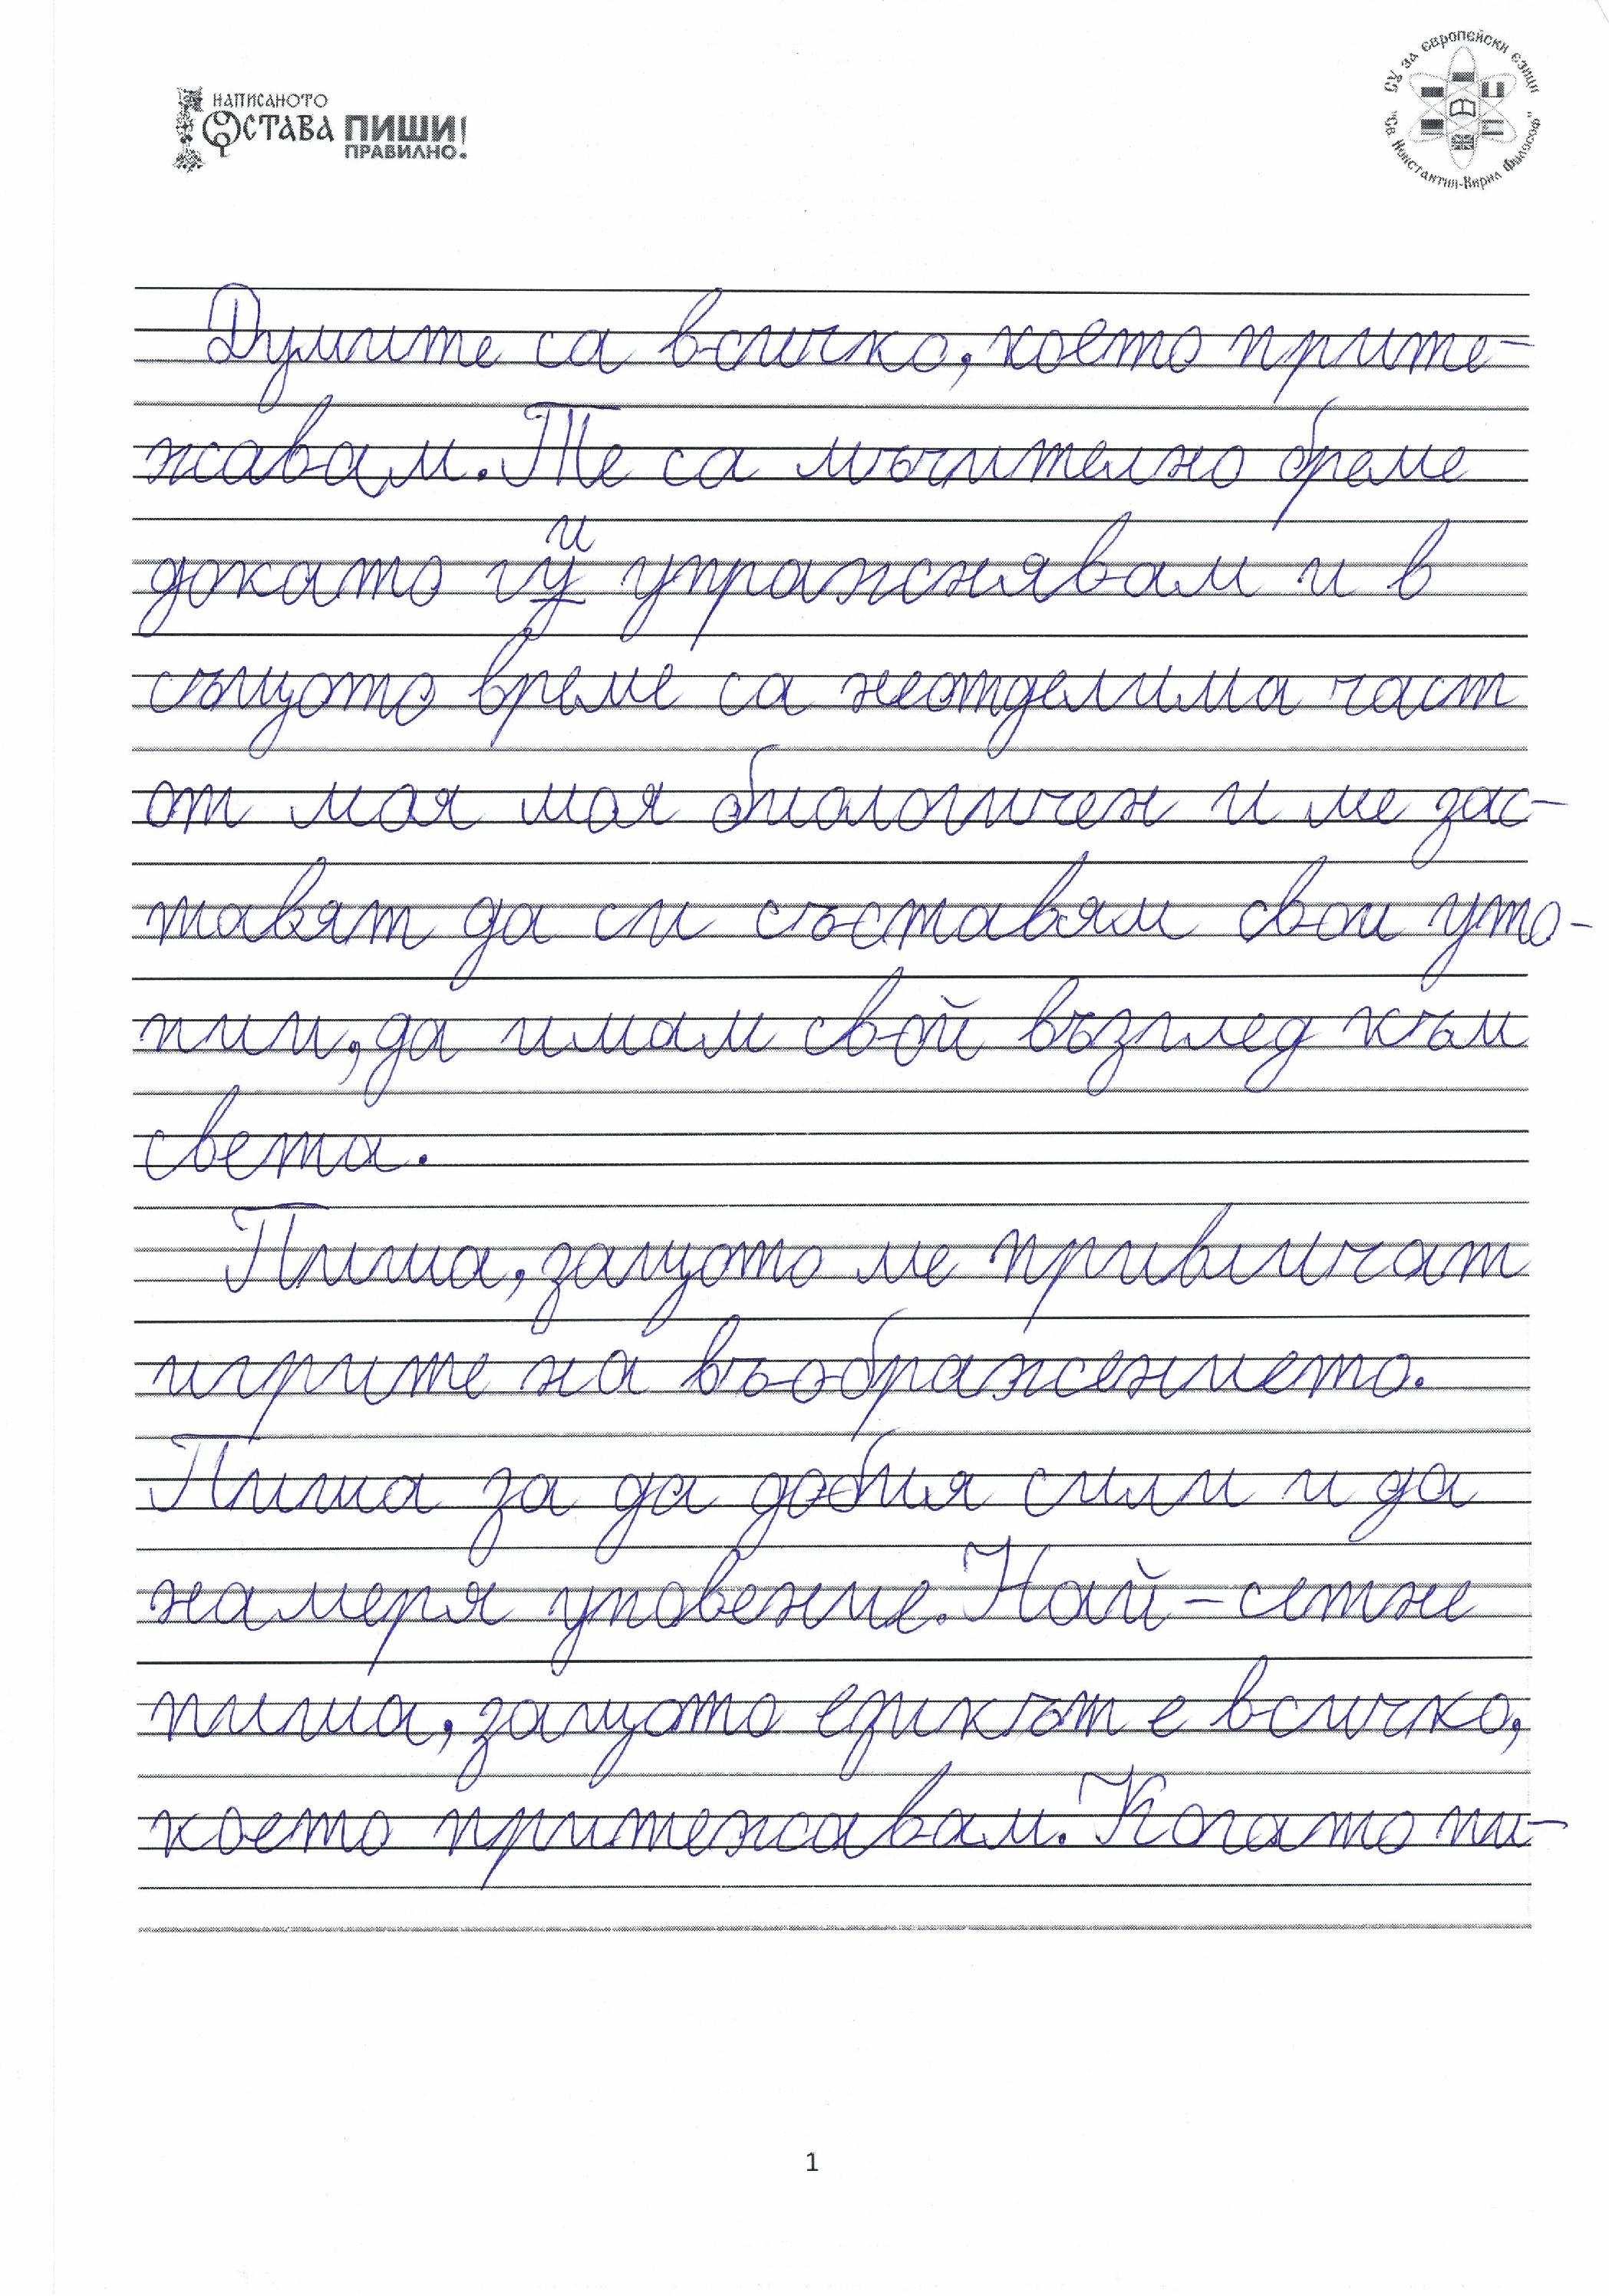 НАПИСАНОТО
ОСТАВА ПИШИ
ПРАВИЛНО!
СУ за европейски езици
"Св. Константин-Кирил Философ"
Думите са всичко, което прите-
жавам. Те са мъчително бреме
докато гй и упражнявам и в
същото време са неотделима част
от моя моя биологичен и ме зас-
тавят да си съставям свои уто-
пии, да имам свой възглед към
света.
Пиша, защото ме привличат
игрите на въображението.
Пиша за да добия сили и да
намеря уповение. Най-сетне
пиша, защото езикът е всичко,
което притежавам. Когато пи-
1